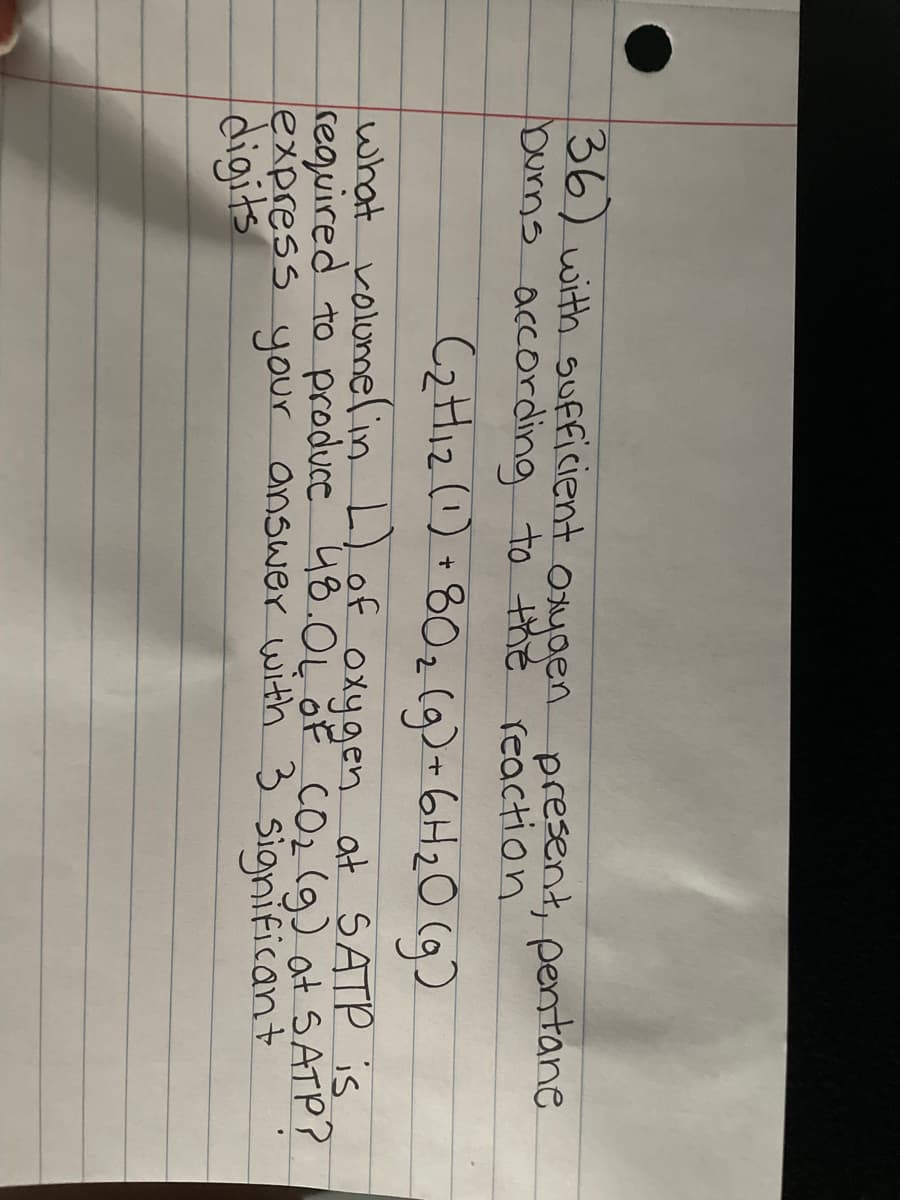 36) with sufficient oxygen present, pentane
burns according to the reaction
C₂H₁₂ (l) + 8O₂ (g) + 6H₂O (g)
what volume (in L) of oxygen at SATP is
required to produce 48.0L of CO₂ (g) at SATP?
express your answer with 3 significant
digits.